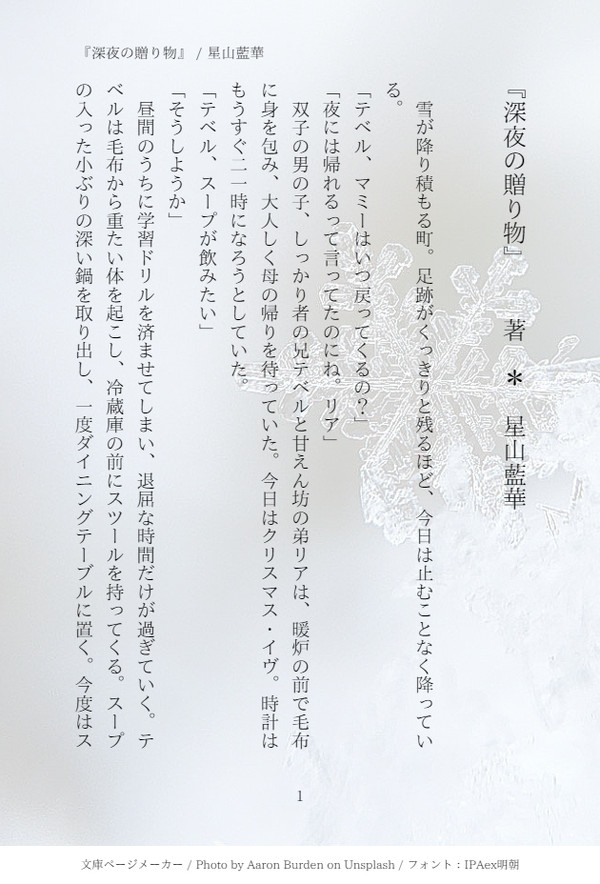 『深夜の贈り物』 / 星山藍華
『深夜の贈り物』　著　＊　星山藍華
　雪が降り積もる町。足跡がくっきりと残るほど、今日は止むことなく降ってい
る。
「テベル、マミーはいつ戻ってくるの？」
「夜には帰れるって言ってたのにね。リア」
　双子の男の子、しっかり者の兄テベルと甘えん坊の弟リアは、暖炉の前で毛布
に身を包み、大人しく母の帰りを待っていた。今日はクリスマス・イヴ。時計は
もうすぐ二一時になろうとしていた。
「テベル、スープが飲みたい」
「そうしようか」
　昼間のうちに学習ドリルを済ませてしまい、退屈な時間だけが過ぎていく。テ
ベルは毛布から重たい体を起こし、冷蔵庫の前にスツールを持ってくる。スープ
の入った小ぶりの深い鍋を取り出し、一度ダイニングテーブルに置く。今度はス
1
文庫ページメーカー / Photo by Aaron Burden on Unsplash / フォント：IPAex明朝